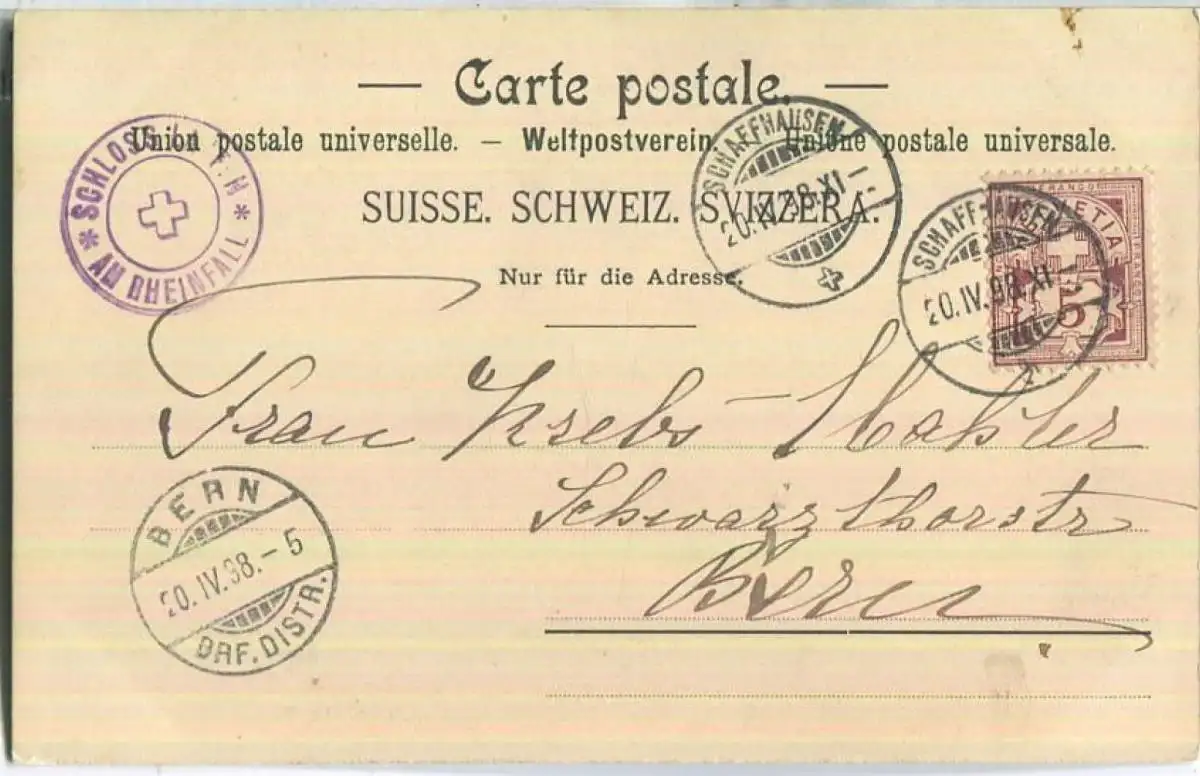 Carte postale.
Union postale universelle. — Weltpostverein. — Unione postale universale.
SUISSE. SCHWEIZ. SVIZZERA.
Nur für die Adresse.
* SCHLOSS LAUFEN *
AM RHEINFALL
SCHAFFHAUSEN
20.IV.98.XI–
SCHAFFHAUSEN
20.IV.98.XI–
FRANCO
HELVETIA
5
Frau Krebs-
Schwarzthorstr
Bern
BERN
20.IV.98.–5
BRF.DISTR.